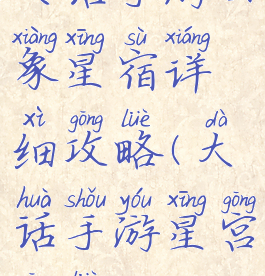 xiàng xīng sù xiáng
象星宿详
xì gōng lüè dà
细攻略(大
huà shǒu yóu xīng gōng
话手游星宫